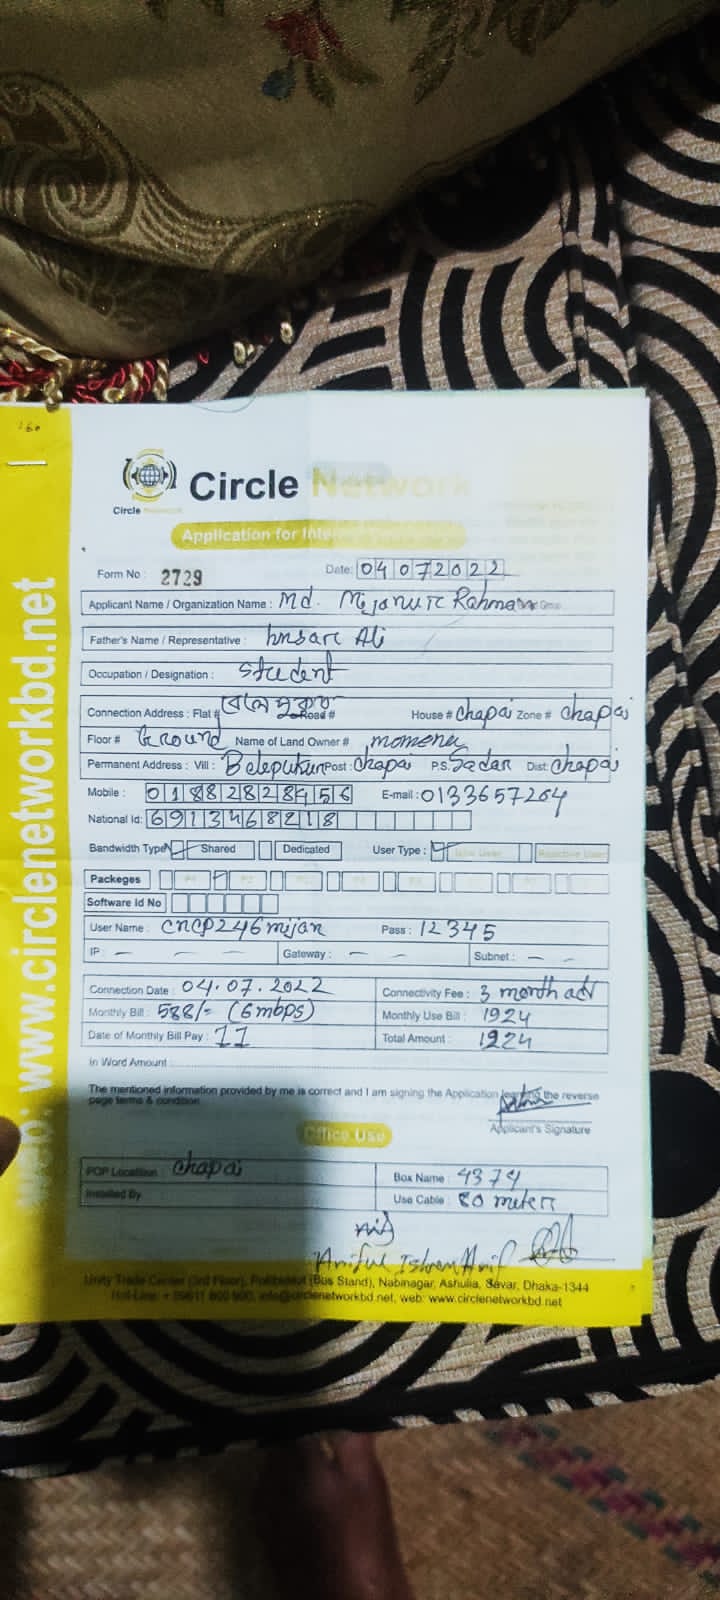 Circle Network
Circle Network
Application for Inte
Form No : 2729 Date: 04072022
Applicant Name / Organization Name : Md. Mijanur Rahman
Father's Name / Representative : Ali
Occupation / Designation : Student
Connection Address : Flat # বেলেপুকুর Road # House # chapai Zone # chapai
Floor # Ground Name of Land Owner # momena
Permanent Address : Vill : Belepukur Post : chapai P.S. Sadar Dist: chapai
Mobile : 01882828456 E-mail : 0133657264
National Id: 6913468218
Bandwidth Type Shared Dedicated User Type : New User
Packeges P1 P2
Software Id No
User Name : cncp246mijan Pass : 12345
IP : — — — Gateway : — — Subnet : — —
Connection Date : 04.07.2022 Connectivity Fee : 3 month adv
Monthly Bill : 588/= (6mbps) Monthly Use Bill : 1924
Date of Monthly Bill Pay : 11 Total Amount : 1924
In Word Amount :
The mentioned information provided by me is correct and I am signing the Application the reverse
page terms & condition
Applicant's Signature
Office Use
POP Location : chapai Box Name : 4374
Installed By Use Cable : 80 meter
Ariful Islam Arif
Unity Trade Center (3rd Floor), Pollibiddut (Bus Stand), Nabinagar, Ashulia, Savar, Dhaka-1344
Hot-Line: + 09611 800 900, info@circlenetworkbd.net, web: www.circlenetworkbd.net
web: www.circlenetworkbd.net